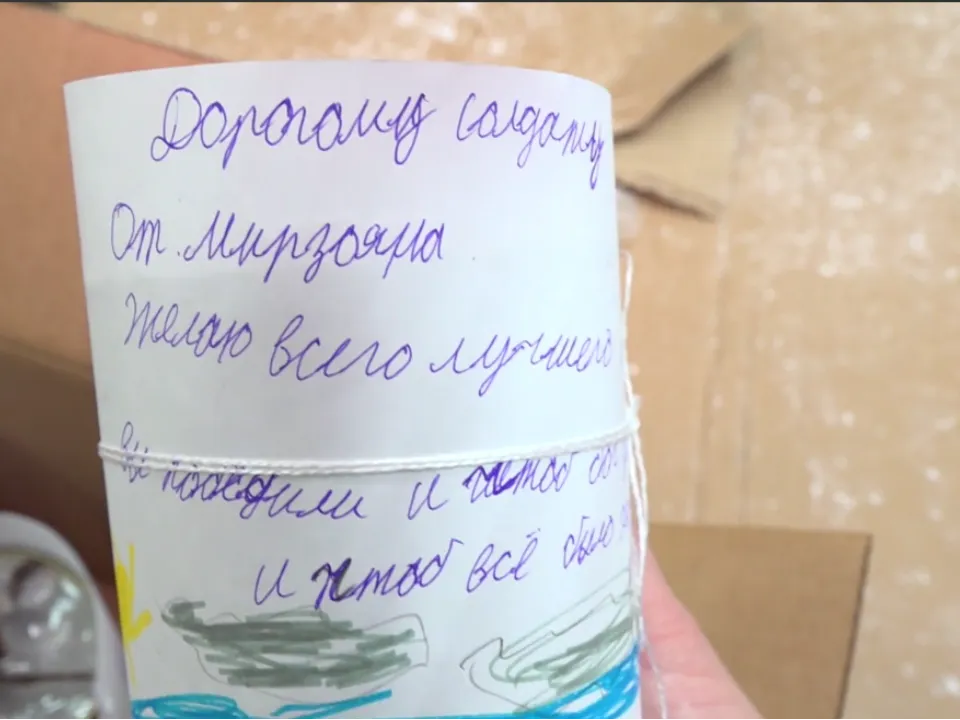 Дорогому солдату
От Мирзояна
Желаю всего лучшего
победили и чтоб
и чтоб всё было